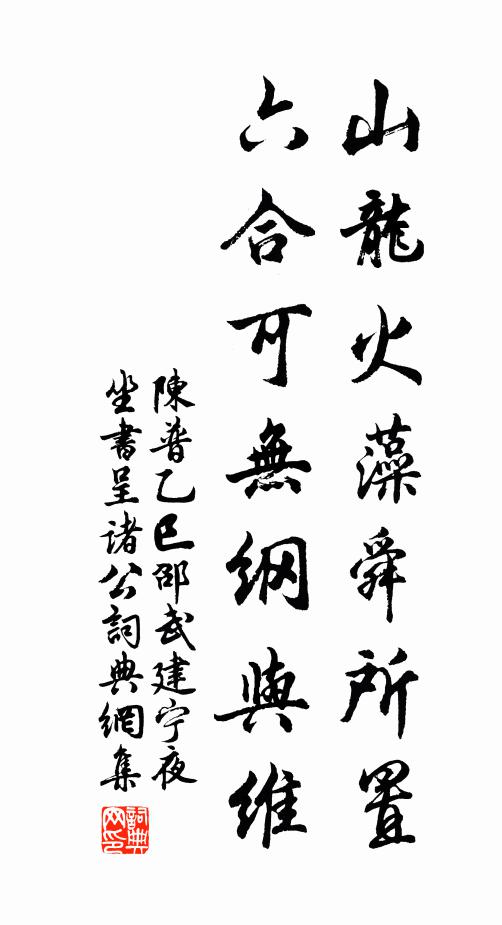 山龍火藻舜所置
六合可無綱與維
陳普乙巳邵武建宁夜
坐書呈诸公詞典網集
詞典网印